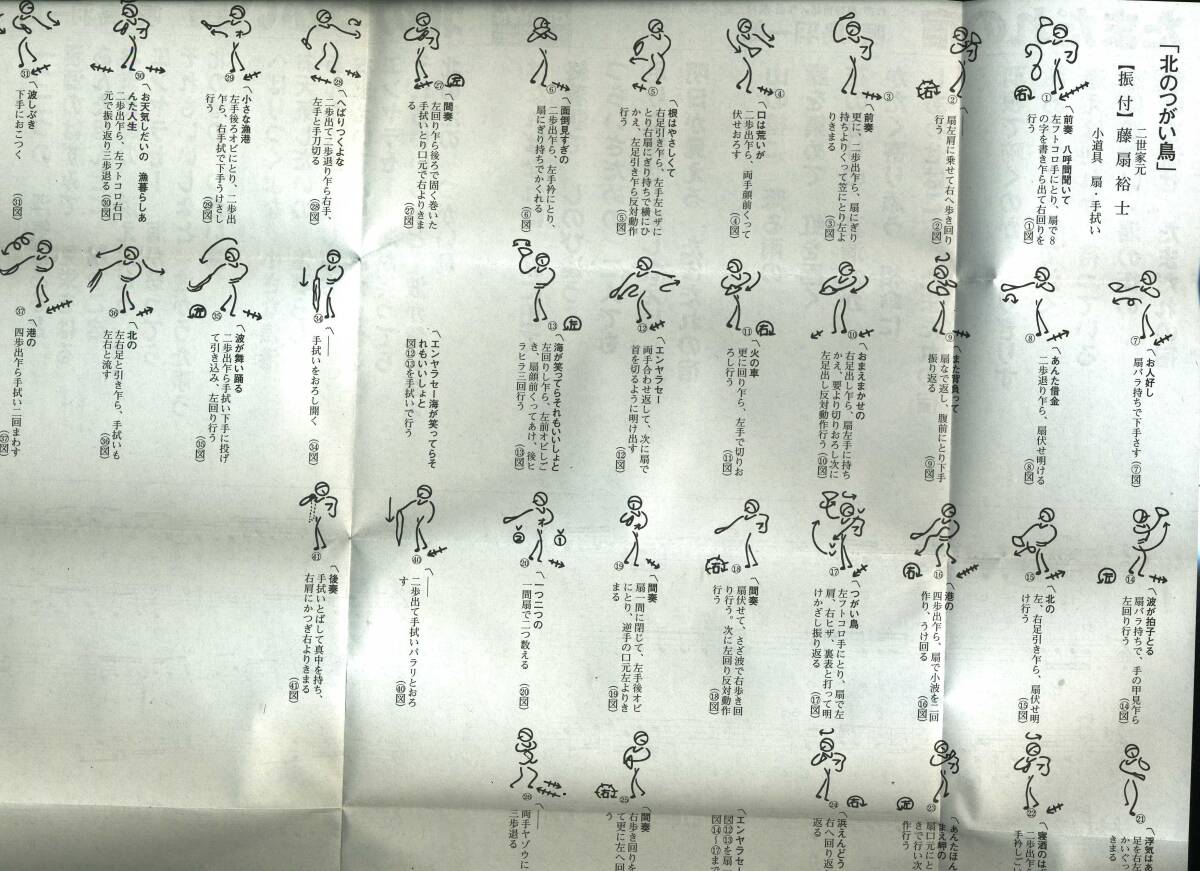 「北のつがい鳥」
二世家元
【振付】藤扇裕士
小道具　扇・手拭い
①
右
〽前奏　八呼間聞いて
左フトコロ手にとり、扇で8
の字を書き乍ら出て右回りを
行う
（①図）
②
右
扇左肩に乗せて右へ歩き回り
行う
（②図）
③
〽前奏
更に、二歩出乍ら、扇にぎり
持ちよりくって笠にとり左よ
りきまる
（③図）
④
〽口は荒いが
二歩出乍ら、両手顔前くって
伏せおろす
（④図）
⑤
〽根はやさしくて
右足引き乍ら、左手左ヒザに
とり右扇にぎり持ちで横にひ
かえ、左足引き乍ら反対動作
（⑤図）
⑥
〽面倒見すぎの
二歩出乍ら、左手衿にとり、
扇にぎり持ちでかくれる
（⑥図）
㉗
左
〽間奏
左回り乍ら後ろで固く巻いた
手拭いとり口元で右よりきま
る
（㉗図）
㉘
〽へばりつくよな
二歩出て二歩退り乍ら右手、
左手と手刀切る
（㉘図）
㉙
〽小さな漁港
左手後ろオビにとり、二歩出
乍ら、右手拭で下手うけさし
行う
（㉙図）
㉚
〽お天気しだいの　漁暮らしあ
んた人生
二歩出乍ら、左フトコロ右口
元で振り返り三歩退る（㉚図）
㉛
〽波しぶき
下手におこつく
（㉛図）
⑦
〽お人好し
扇バラ持ちで下手さす
（⑦図）
⑧
〽あんた借金
二歩退り乍ら、扇伏せ明ける
（⑧図）
⑨
〽また背負って
扇なで返し、腹前にとり下手
振り返る
（⑨図）
⑩
〽おまえまかせの
右足出し乍ら、扇左手に持ち
かえ、要より切りおろし次に
左足出し反対動作行う（⑩図）
⑪
右
〽火の車
更に回り乍ら、左手で切りお
ろし行う
（⑪図）
⑫
〽エンヤラセー
両手合わせ返して、次に扇で
首を切るように明け出す
（⑫図）
⑬
左
〽海が笑ってらそれもいいしょと
左回りし乍ら、左前オビしご
き、扇顔前くってあけ、後ヒ
ラヒラ三回行う
（⑬図）
〽エンヤラセー海が笑ってらそ
れもいいしょと
図⑫⑬を手拭いで行う
㉞
〽――
手拭いをおろし開く
（㉞図）
㉟
左
〽波が舞い踊る
二歩出乍ら手拭い下手に投げ
て引き込み、左回り行う
（㉟図）
㊱
〽北の
左右足と引き乍ら、手拭いも
左右と流す
（㊱図）
㊲
〽港の
四歩出乍ら手拭い二回まわす
（㊲図）
⑭
左
〽波が拍子とる
扇バラ持ちで、手の甲見乍ら
左回り行う
（⑭図）
⑮
〽北の
左、右足引き乍ら、扇伏せ明
け行う
（⑮図）
⑯
右
〽港の
四歩出乍ら、扇で小波を二回
作り、うけ回る
（⑯図）
⑰
〽つがい鳥
左フトコロ手にとり、扇で左
肩、右ヒザ、裏表と打って明
けかざし振り返る
（⑰図）
⑱
右
〽間奏
扇伏せて、さざ波で右歩き回
り行う。次に左回り反対動作
行う
（⑱図）
⑲
〽間奏
扇一間に閉じて、左手後オビ
にとり、逆手の口元左よりき
まる
（⑲図）
⑳
1
2
〽一つ二つの
一間扇で二つ数える
（⑳図）
㊵
〽――
二歩出て手拭いパラリとおろ
す
（㊵図）
㊶
〽後奏
手拭いとばして真中を持ち、
右肩にかつぎ右よりきまる
（㊶図）
㉑
〽浮気はあ
足を右左
かいぐっ
きまる
㉒
〽寝酒のほ
二歩出乍
手衿しご
㉓
左
〽あんたほん
まえ岬の
扇口元にと
きで行い次
作行う
㉔
右
〽浜えんどう
右へ回り返
返る
〽エンヤラセー
図⑫⑬を扇一
図⑭〜⑰まで
㉕
右
〽間奏
右歩き回りを
て更に左へ回
う
㉖
〽――
両手ヤゾウに
三歩退る